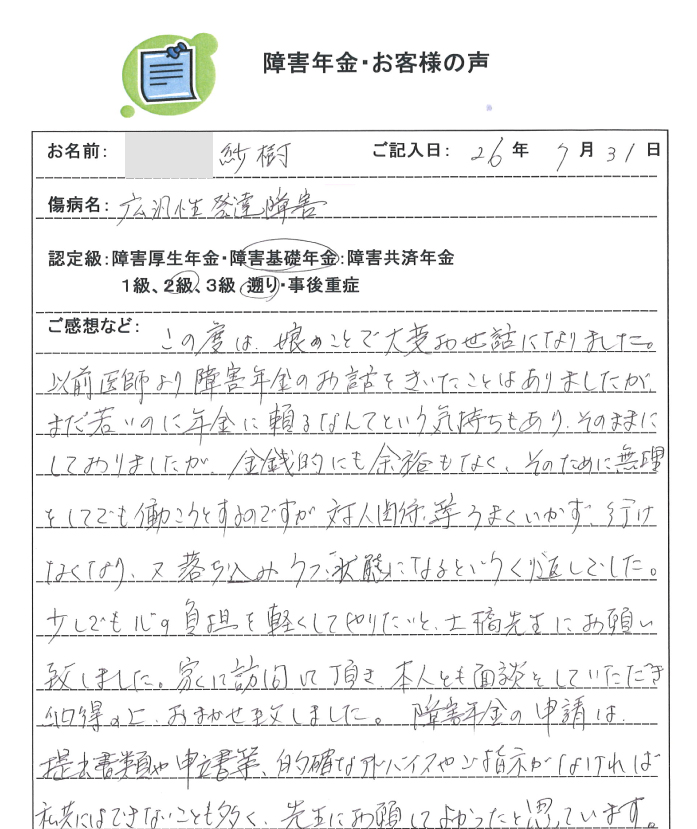 障害年金・お客様の声
お名前： 紗樹 ご記入日： 26 年 7 月 31 日
傷病名： 広汎性発達障害
認定級：障害厚生年金・障害基礎年金：障害共済年金
1級、2級、3級 遡り・事後重症
ご感想など： この度は、娘のことで大変お世話になりました。
以前医師より障害年金のお話をきいたことはありましたが
まだ若いのに年金に頼るなんてという気持ちもあり、そのままに
しておりましたが、金銭的にも余裕もなく、そのために無理
をしてでも働こうとするのですが対人関係等うまくいかず、行け
なくなり、又落ち込みウツ状態になるというくり返しでした。
少しでも心の負担を軽くしてやりたいと、土橋先生にお願い
致しました。家に訪問して頂き、本人とも面談をしていただき
納得の上、おまかせ致しました。障害年金の申請は、
提出書類や申立書等、的確なアドバイスやご指示がなければ
私共にはできないことも多く、先生にお願してよかったと思っています。